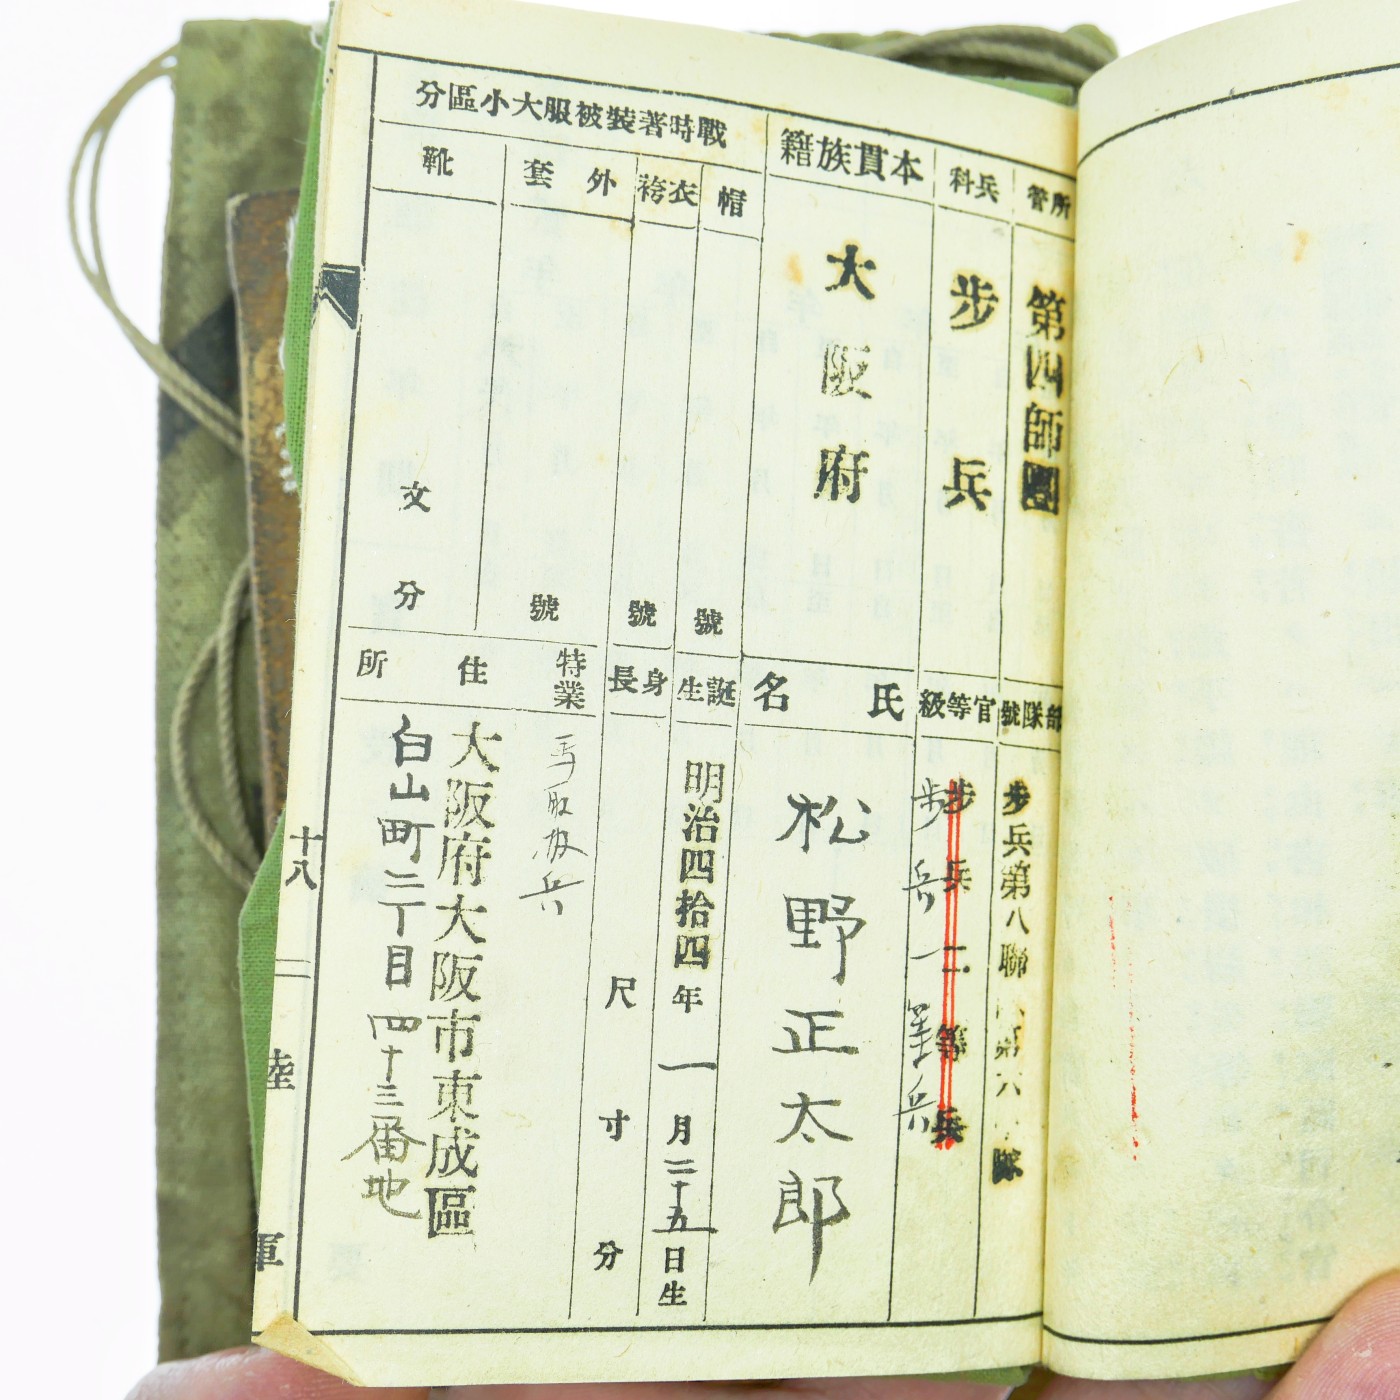 所管
第四師團
部隊號
步兵第八聯 第六 隊
兵科
步兵
官等級
步兵二等兵
步兵一等兵
本貫族籍
大阪府
氏名
松野正太郎
戰時著裝被服大小區分
帽
號
衣袴
號
外套
號
靴
文
分
誕生
明治四拾四年一月二十五日生
身長
尺寸分
特業
兵
住所
大阪府大阪市東成區
白山町二丁目四十三番地
十八
陸軍